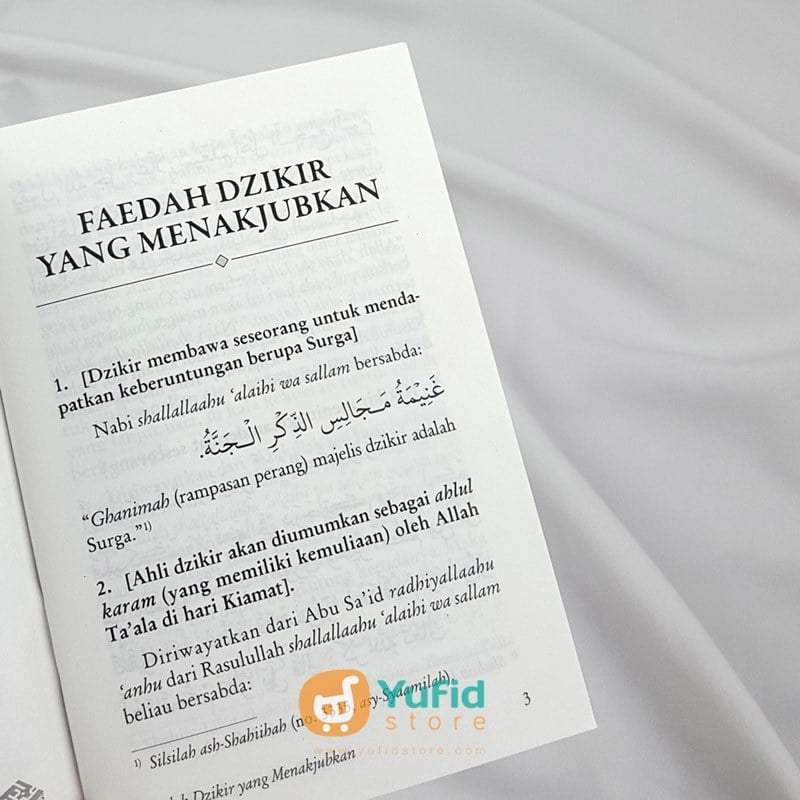 FAEDAH DZIKIR
YANG MENAKJUBKAN
1. [Dzikir membawa seseorang untuk menda-
patkan keberuntungan berupa Surga]
Nabi shallallaahu ‘alaihi wa sallam bersabda:
غَنِيْمَةُ مَجَالِسِ الذِّكْرِ الْجَنَّةُ.
“Ghanimah (rampasan perang) majelis dzikir adalah
Surga.”1)
2. [Ahli dzikir akan diumumkan sebagai ahlul
karam (yang memiliki kemuliaan) oleh Allah
Ta’ala di hari Kiamat].
Diriwayatkan dari Abu Sa’id radhiyallaahu
‘anhu dari Rasulullah shallallaahu ‘alaihi wa sallam
beliau bersabda:
1) Silsilah ash-Shahiihah (no. asy-Syaamilah).
Dzikir yang Menakjubkan
3
YuFid
store
www.yufidstore.com